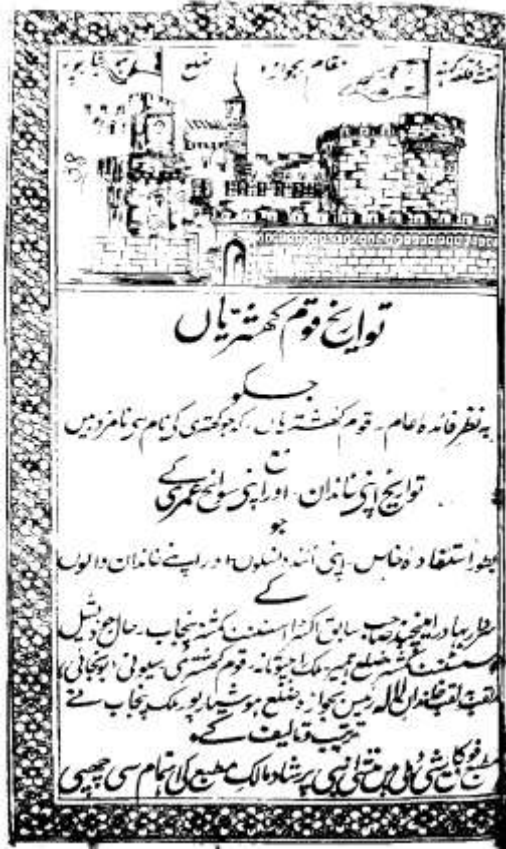 نقشہ قلعہ کہنہ مقام بجواڑہ ضلع ہوشیارپور
تواریخ قوم کھتریاں
جسکو
بہ نظر فائدہ عام۔ قوم کھشتریاں۔ کہ جو کھتری کے نام سے نامزد ہیں
مع
تواریخ اپنی خاندان۔ اور اپنی سوانح عمری کے
جو
بطور استفادہ خاص۔ اپنی آئندہ نسلوں۔ اور اپنے خاندان والوں
کے
سردار بہادر امینچند صاحب سابق اکسٹرا اسسٹنٹ کمشنر پنجاب۔ حال جوڈیشل
اسسٹنٹ کمشنر ضلع اجمیر ملک راجپوتانہ۔ قوم کھشتری
ملقب بلقب خاندان لالہ رئیس بجواڑہ ضلع ہوشیارپور ملک پنجاب نے
ترتیب و تالیف کے
مطبع فوق کاشی دہلی میں منشی پرشاد مالک مطبع کی اہتمام سی چھپی